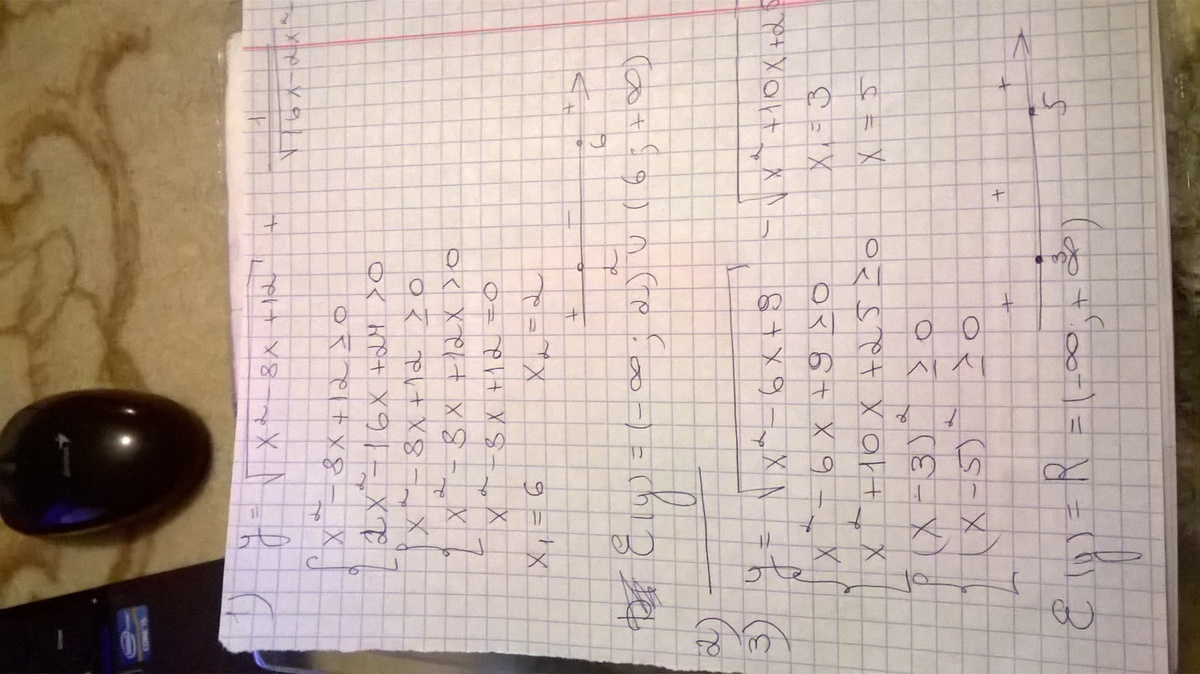 1) y = √(x² - 8x + 12) + 1/√(16x - 2x²
{ x² - 8x + 12 ≥ 0
2x² - 16x + 24 > 0
{ x² - 8x + 12 ≥ 0
x² - 8x + 12x > 0
x² - 8x + 12 = 0
x₁ = 6 x₂ = 2
+ - +
2 6
E(y) = (-∞; 2) ∪ (6; +∞)
2)
3) y = √(x² - 6x + 9) - √(x² + 10x + 25
{ x² - 6x + 9 ≥ 0 x₁ = 3
x² + 10x + 25 ≥ 0 x = 5
{ (x - 3)² ≥ 0
(x - 5)² ≥ 0
+ + +
3 5
E(y) = R = (-∞; +∞)